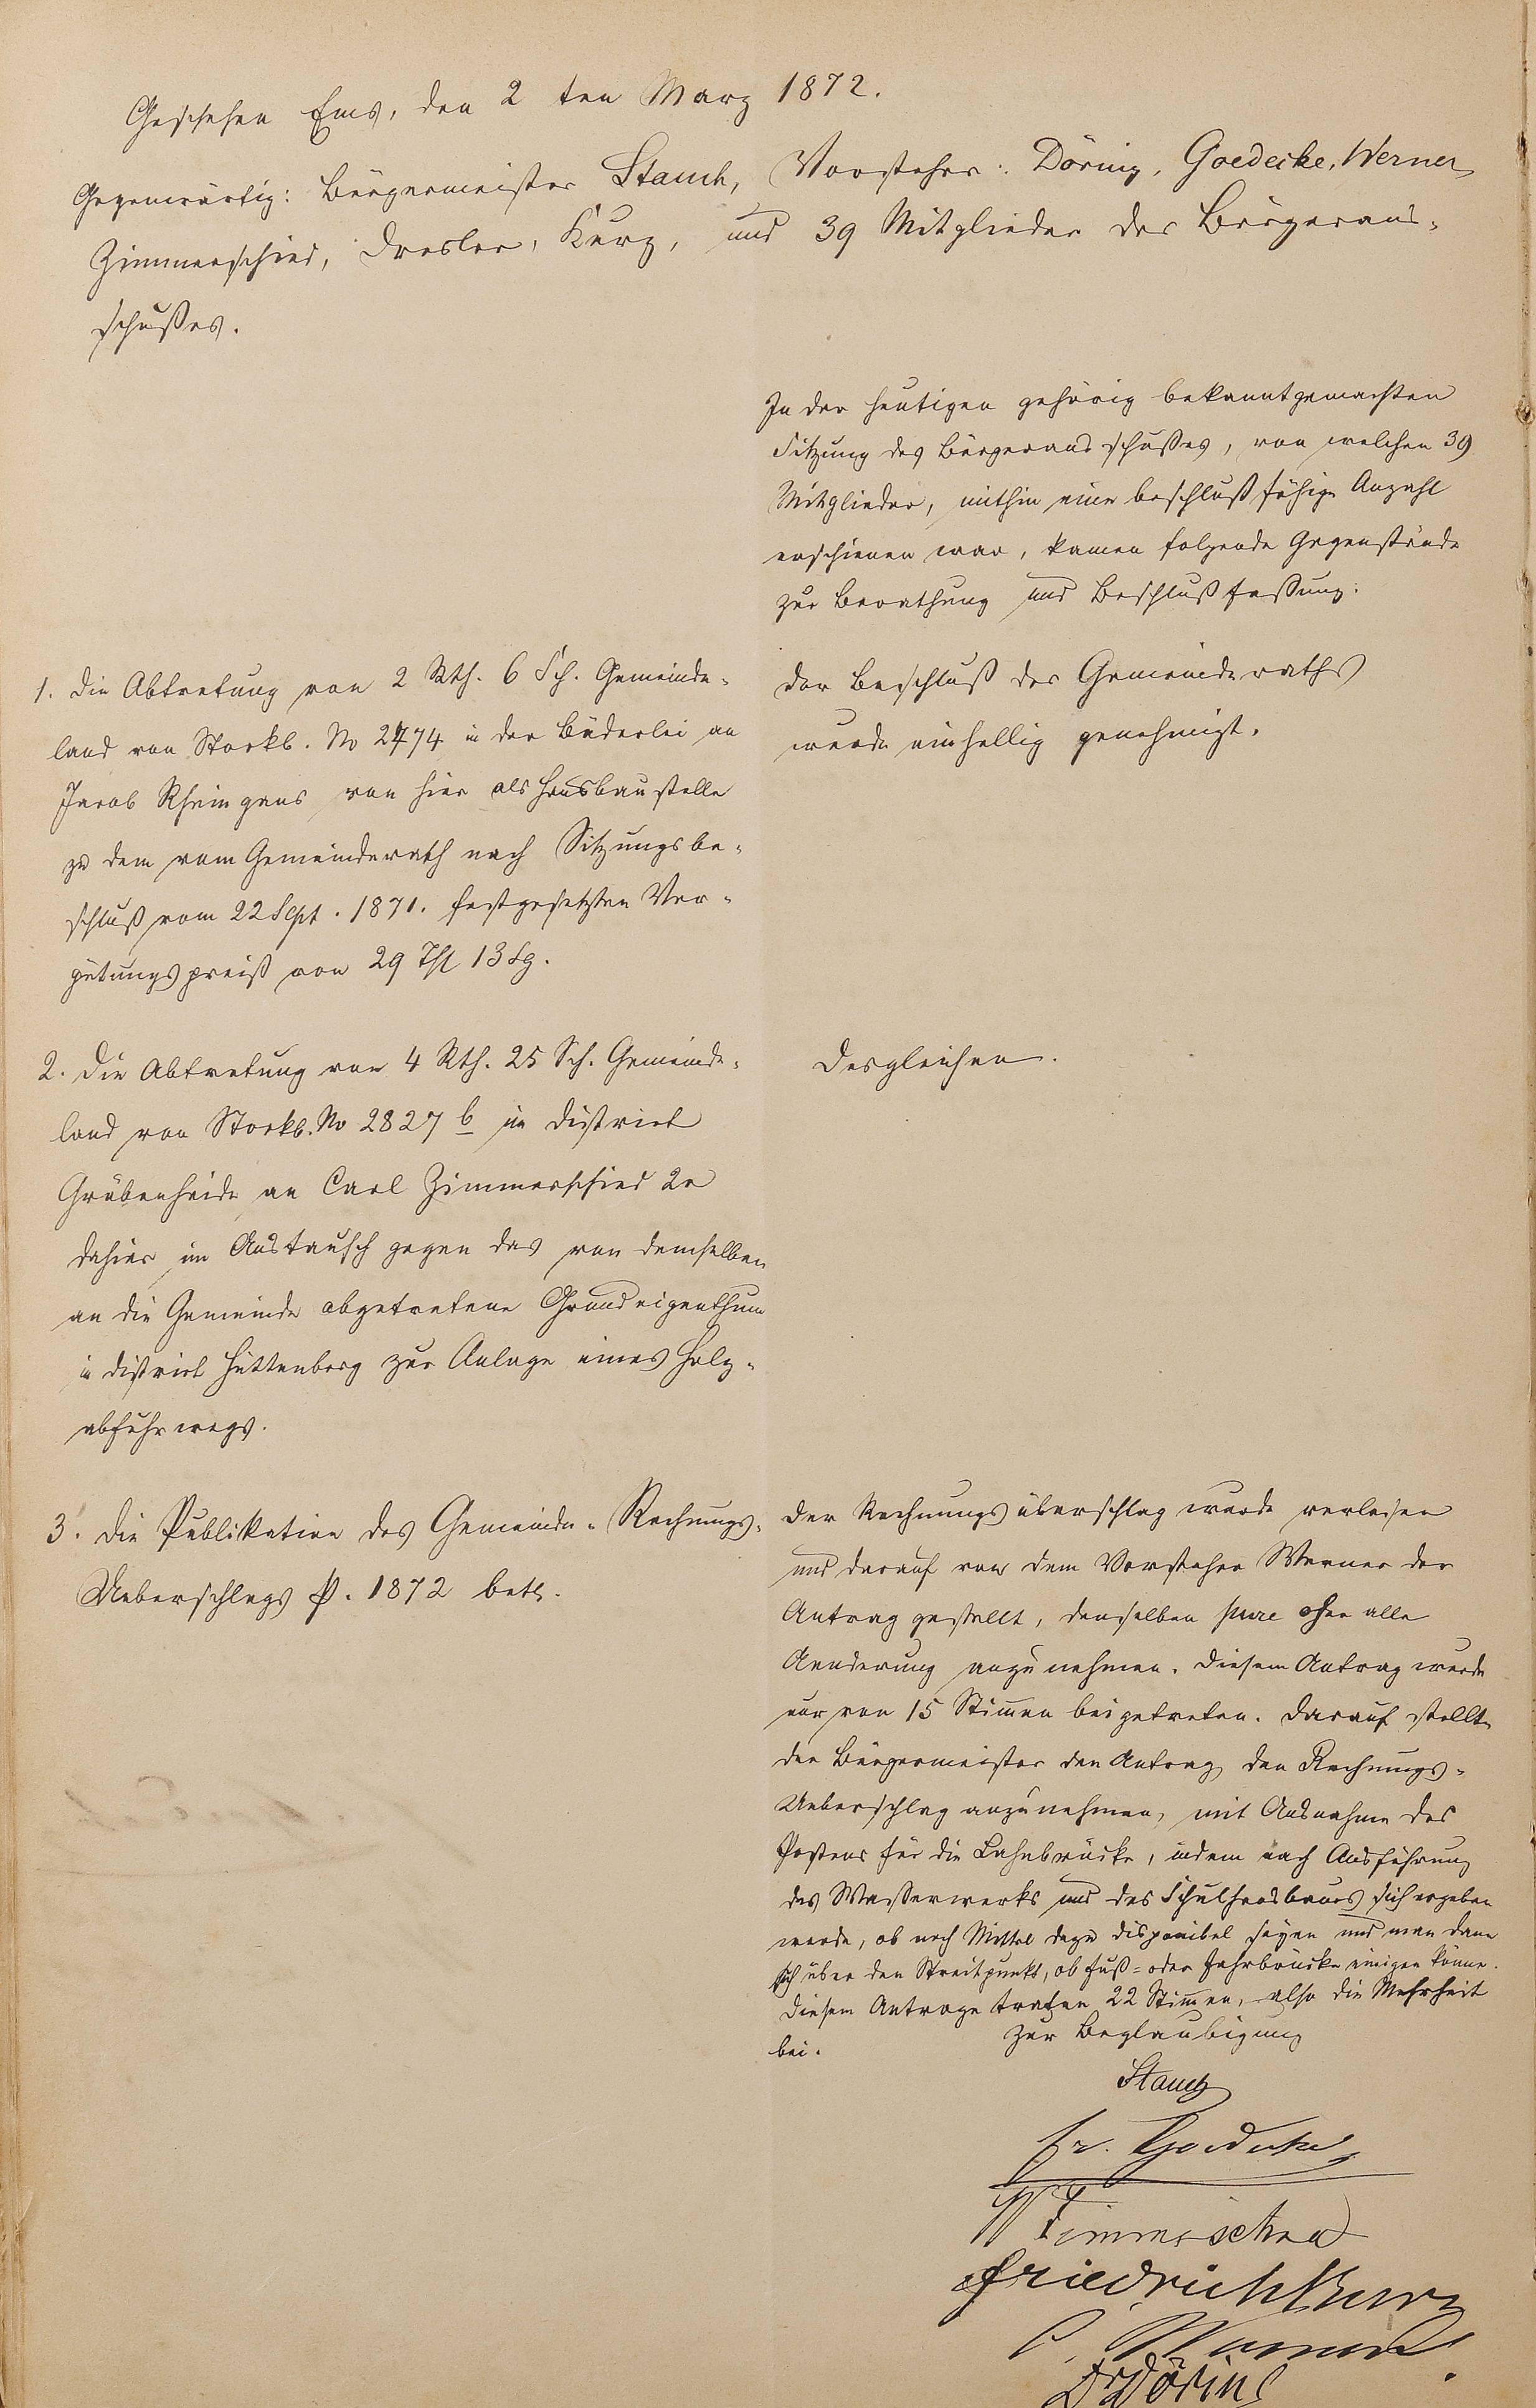 Geschehen Ems, den 2 ten März 1872.
Gegenwärtig: Bürgermeister Stauch, Vorsteher: Döring, Goedecke, Werner,
Zimmerschied, Dresler, Kurz, und 39 Mitglieder des Bürgeraus-
schußes.
In der heutigen gehörig bekanntgemachten
Sitzung des Bürgerausschußes, von welchen 39
Mitglieder, mithin eine beschlußfähige Anzahl
erschienen war, kamen folgende Gegenstände
zur Berathung und Beschlußfaßung:
1. Die Abtretung von 2 Rth. 6 Sch. Gemeinde-
land von Stockb. No 2474 in der Bäderlei an
Jacob Rheingans von hier als Hausbaustelle
zu dem vom Gemeinderath nach Sitzungsbe-
schluß vom 22 Sept. 1871. festgesetzten Ver-
gütungspreiß von 29 Thl 13 Sg.
Der Beschluß des Gemeinderaths
wurde einhellig genehmigt.
2. Die Abtretung von 4 Rth. 25 Sch. Gemeinde-
land von Stockb. No 2827 b in District
Gräbenheide an Carl Zimmerschied 2r
dahier im Austausch gegen das von demselben
an die Gemeinde abgetretene Grundeigenthum
in District Hüttenberg zur Anlage eines Holz-
abfuhrwegs.
Desgleichen.
3. Die Publikation des Gemeinde-Rechnungs-
Ueberschlags p. 1872 betr.
Der Rechnungsüberschlag wurde verlesen
und darauf von dem Vorsteher Werner der
Antrag gestellt, denselben pure ohne alle
Aenderung anzunehmen. Diesem Antrag wurde
nur von 15 Stimmen beigetreten. Darauf stellte
der Bürgermeister den Antrag den Rechnungs-
Ueberschlag anzunehmen, mit Ausnahme des
Postens für die Lahnbrücke, indem nach Ausführung
des Waßerwerks und des Schulhausbaues sich ergeben
werde, ob noch Mittel dazu disponibel seyen und man dann
sich über den Streitpunkt, ob Fuß- oder Fahrbrücke einigen könne.
Diesem Antrage traten 22 Stimmen, also die Mehrheit
bei.
Zur Beglaubigung
Stauch
Fr. Goedecke
Zimmerschied
Friedrich Kurz
C. Werner
Dr Döring